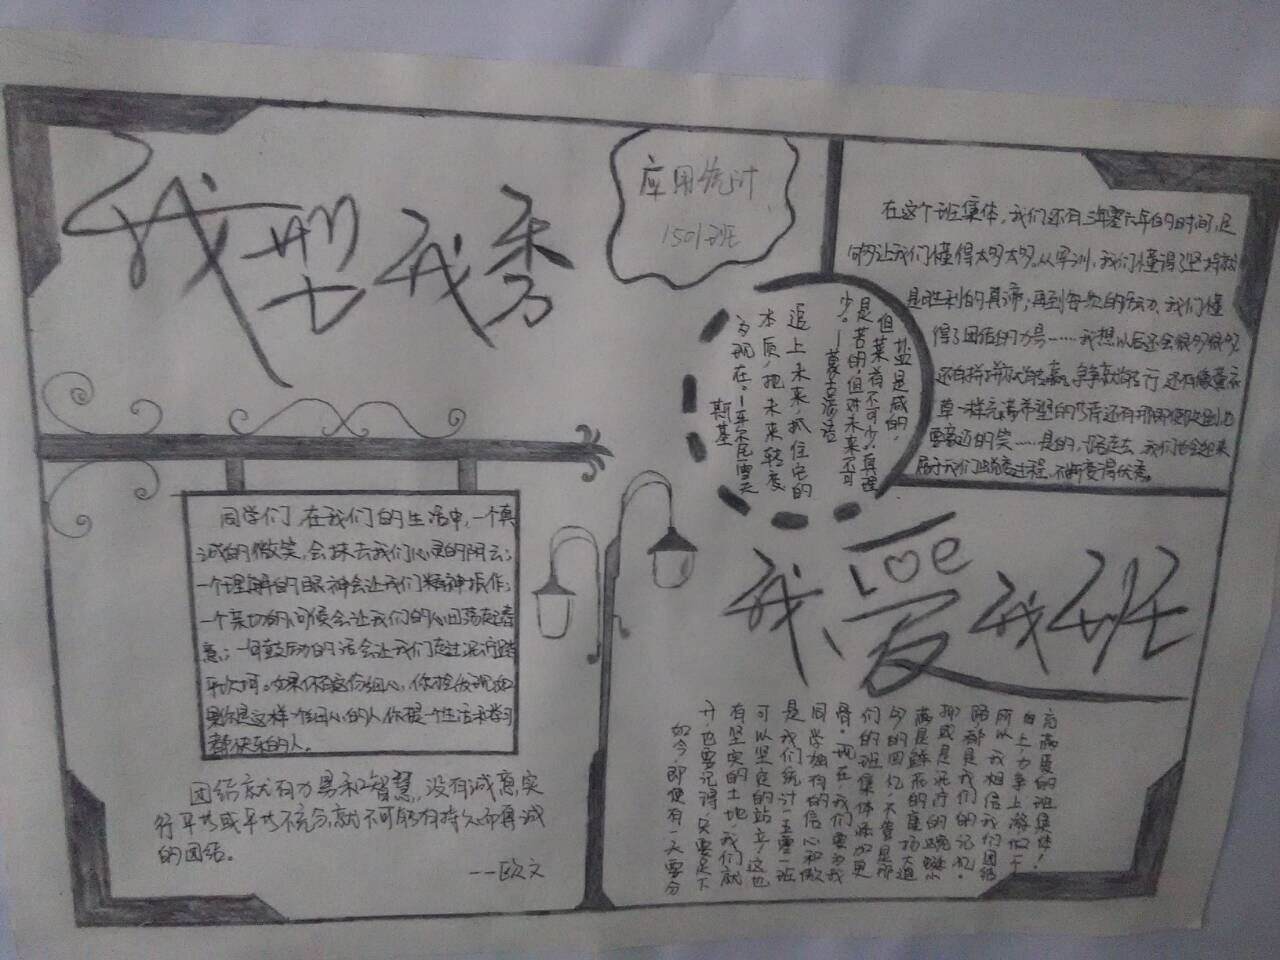 我型我秀
应用统计
1501班
在这个班集体，我们还有三年零六个月的时间，足
够让我们懂得太多太多。从军训，我们懂得了坚持就
是胜利的真谛；再到每次的活动，我们懂
得了团结的力量……我想以后还会很多很多
草一样充满希望的
豪迈的笑……是的，一路走去，我们
不断变得优秀。
盐是咸的，
但菜有不可少；真理
是苦的，但对未来不可
少。—蒙古谚语
追上未来，抓住它的
本质，把未来转变
为现在。—车尔尼雪夫
斯基
同学们，在我们的生活中，一个真
诚的微笑，会抹去我们心灵的阴云；
一个理解的眼神会让我们精神振作；
一个亲切的问候会让我们的心田荡起春
意；一句鼓励的话会让我们走过泥泞踏
平坎坷。如果你有这份细心，你会发现如
果你是这样一个细心的人，你是一个生活和学习
都快乐的人。
团结就有力量和智慧，没有诚意实
行平等或平等不充分，就不可能有持久而真诚
的团结。
——欧文
我爱我班
love
如今，即便有一天要分
开，也要记得，只要足下
有坚实的土地，我们就
可以坚定的站立，这也
是我们统计一五零一班
同学独有的信心和傲
骨。现在，我们要为我
们的班集体添加更
多的回忆，不管是那
路都是我们的记忆。
所以，我相信我们团结
向上，力争上游的
充满爱的班集体！